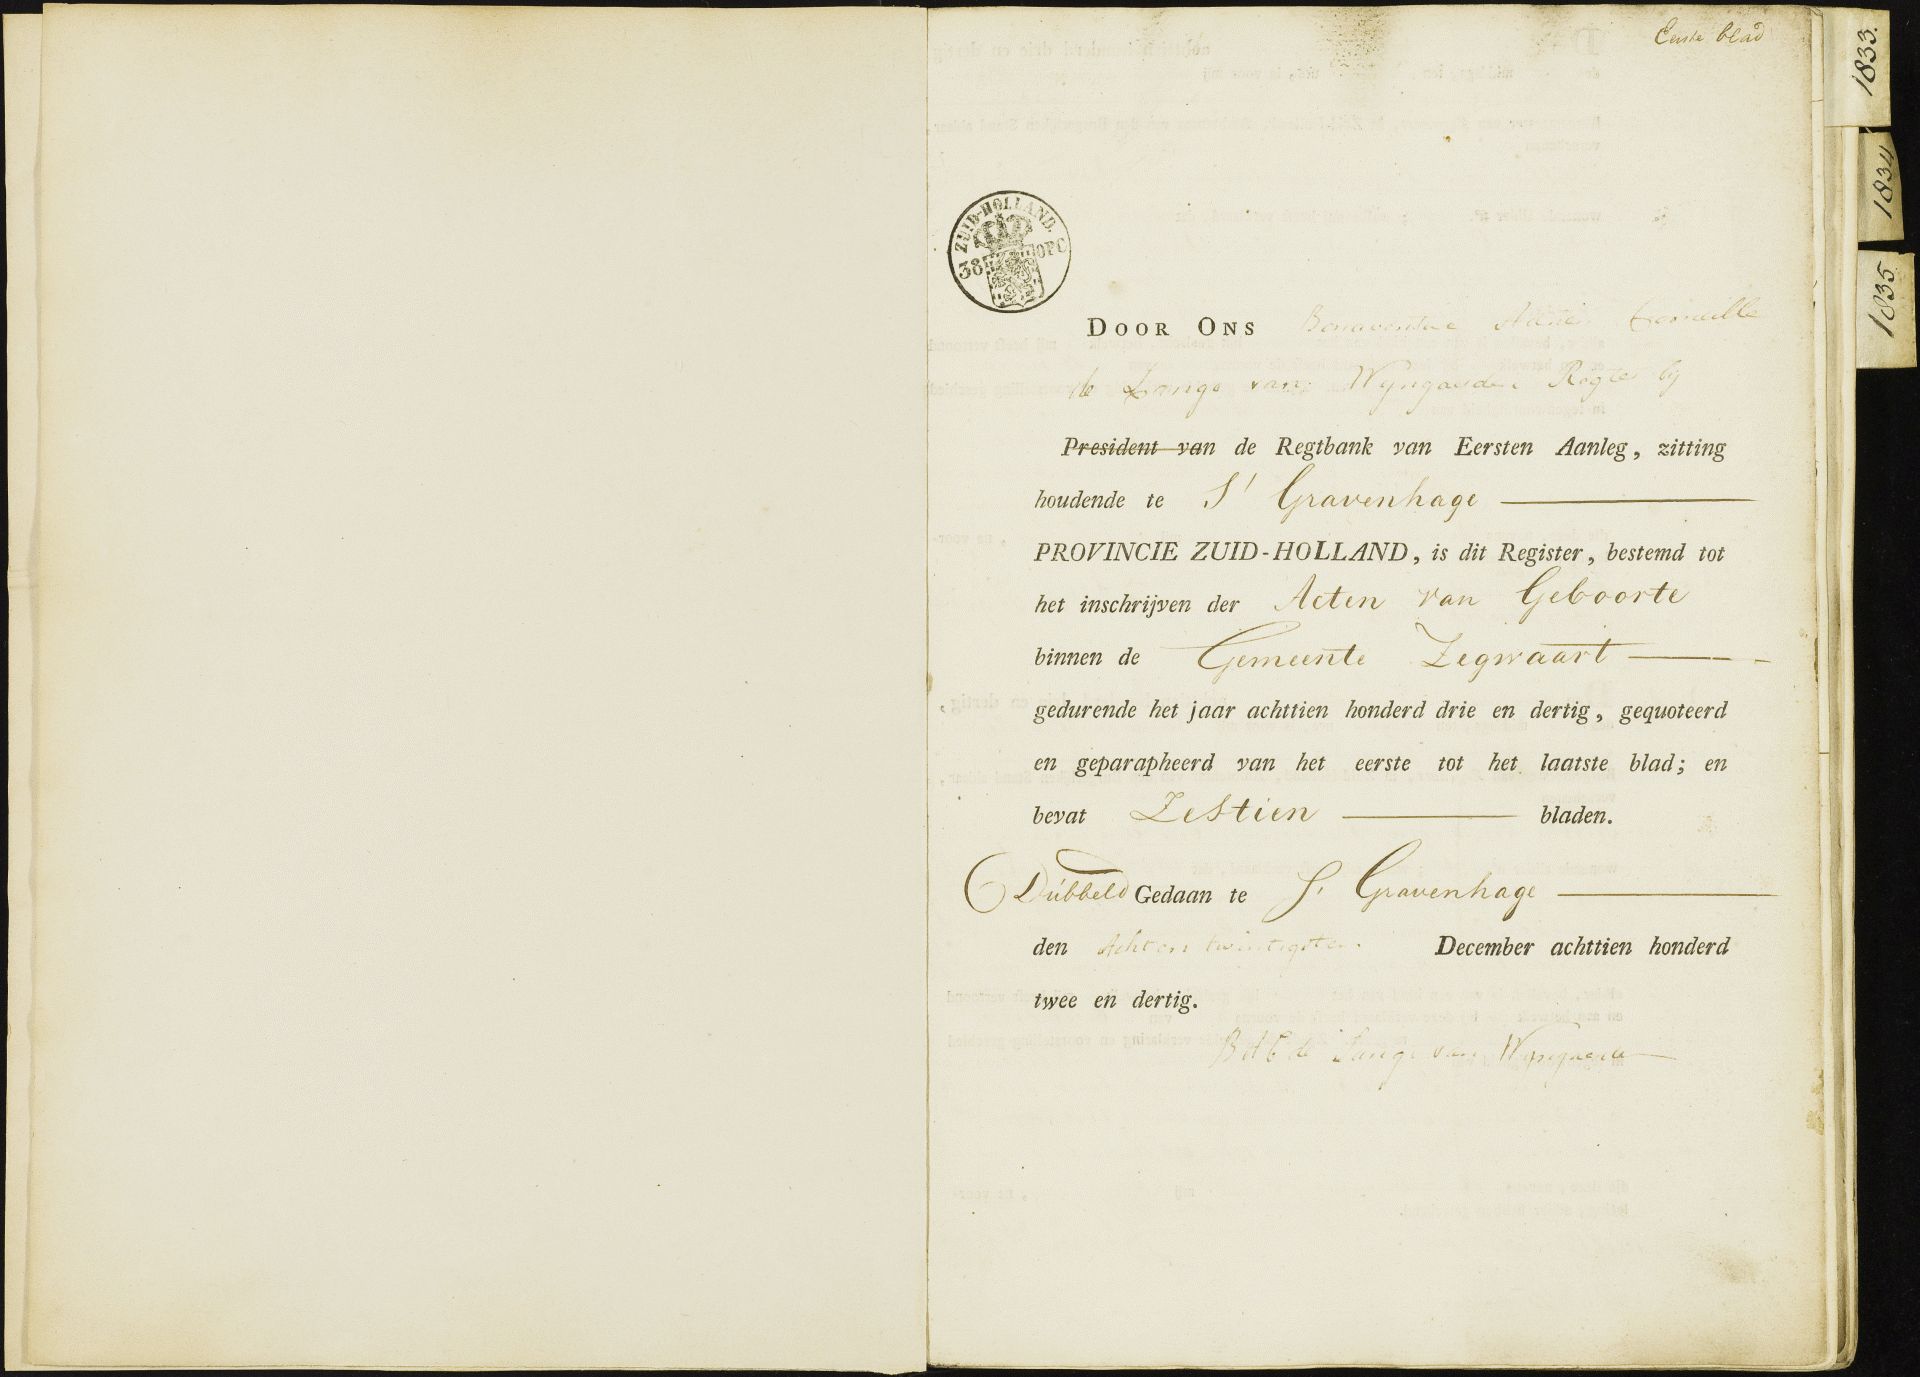 Eerste blad
1833.
1834
1835
ZUID-HOLLAND.
38 OPC
DOOR ONS Bonaventure Adrien Corneille
de Lange van Wyngaerden Regter bij
President van de Regtbank van Eersten Aanleg, zitting
houdende te S' Gravenhage
PROVINCIE ZUID-HOLLAND, is dit Register, bestemd tot
het inschrijven der Acten van Geboorte
binnen de Gemeente Zegwaart
gedurende het jaar achttien honderd drie en dertig, gequoteerd
en geparapheerd van het eerste tot het laatste blad; en
bevat Zestien bladen.
Dúbbeld Gedaan te S. Gravenhage
den Acht en twintigsten December achttien honderd
twee en dertig.
BAC de Lange van Wyngaerden